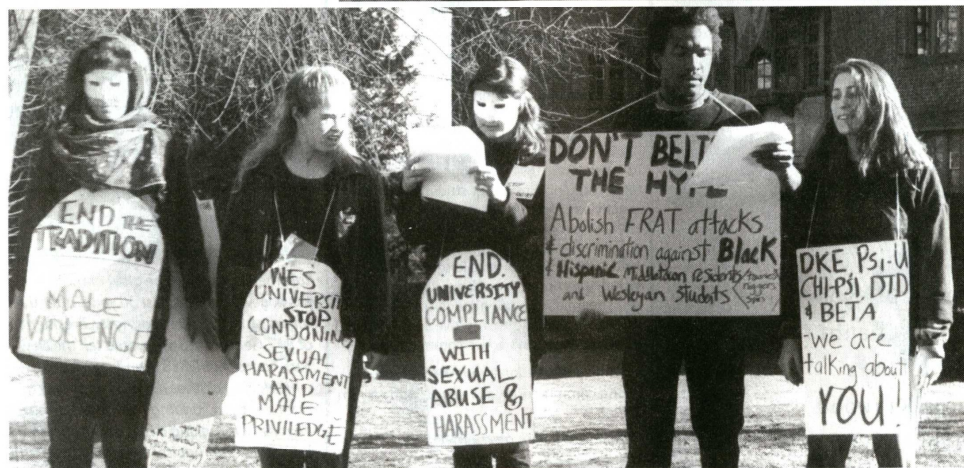 END THE
TRADITION
MALE
VIOLENCE
WES'
UNIVERSIT
STOP
CONDONING
SEXUAL
HARASSMENT
AND
MALE
PRIVILEGE
END
UNIVERSITY
COMPLIANCE
WITH
SEXUAL
ABUSE &
HARASSMENT
DON'T BEL
THE HY
Abolish FRAT attacks
& discrimination against Black
& Hispanic Middletown residents
and Wesleyan Students
DKE, PSI-U
CHI-PSI, DTD
& BETA
-we are
talking about
YOU!